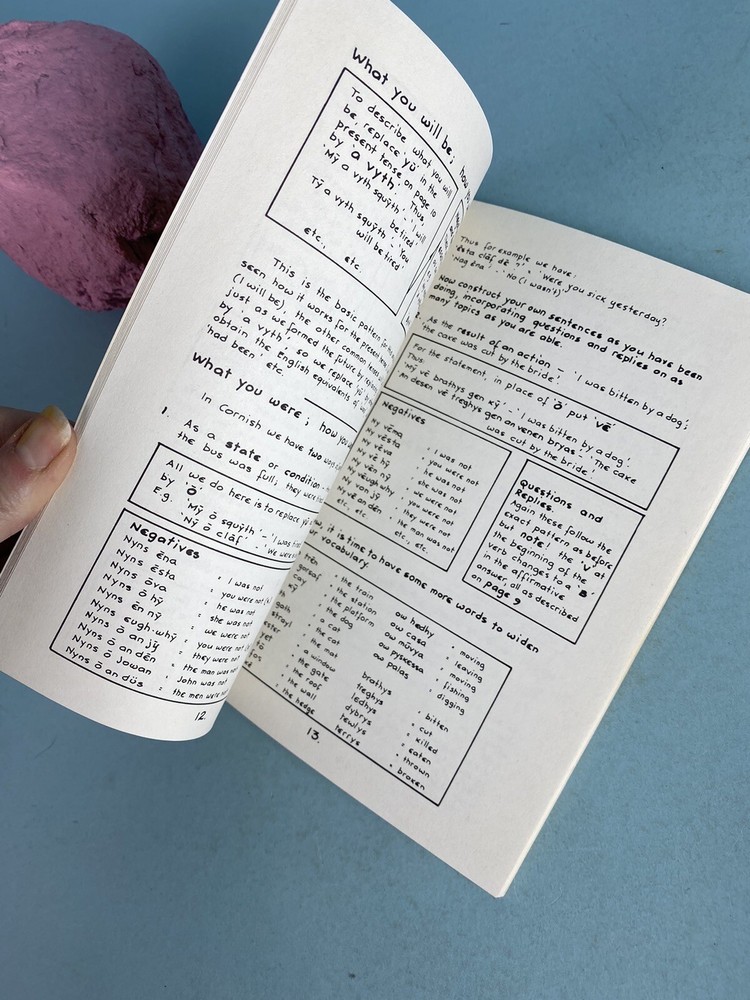 What you will be;
To describe what you will
be, replace 'yū' in the
present tense on page 10
by 'a vyth'. Thus
'Mȳ a vyth squȳth' - 'I will
be tired'
Tȳ a vyth squȳth - 'You
will be tired'
etc., etc.
This is the basic pattern for
seen how it works for the present
(I will be), the other common tenses
just as we formed the future by replacing
by 'a vyth', so we replace
obtain the English equivalents of
'had been', etc
What you were; how you
In Cornish we have two ways
1. As a state or condition
the bus was full; they were
All we do here is to replace yū
by 'ō'.
E.g. 'Mȳ ō squȳth' - 'I was tired'
'Nȳ ō clāf' - 'We were
Negatives
Nyns ēna = I was not
Nyns ēsta = you were not
Nyns ōva = he was not
Nyns ō hȳ = she was not
Nyns ēn nȳ = we were not
Nyns eugh.whȳ = you were not
Nyns ō an jȳ = they were not
Nyns ō an dēn = the man was not
Nyns ō Jowan = John was not
Nyns ō an dūs = the men were
12.
Thus for example we have:
'Ēsta clāf dē ?' - 'Were you sick yesterday?'
'Nag ēna' - 'No (I wasn't)'
Now construct your own sentences as you have been
doing, incorporating questions and replies on as
many topics as you are able.
As the result of an action - 'I was bitten by a dog';
'the cake was cut by the bride'.
For the statement, in place of 'ō' put 'vē'
Thus
'Mȳ vē brathys gen kȳ' - 'I was bitten by a dog'.
'An desen vē treghys gen an venen bryas' - 'The cake
was cut by the bride'.
Negatives
Ny vēma = I was not
Ny vēsta = you were not
Ny vēva = he was not
Ny vē hȳ = she was not
Ny vēn nȳ = we were not
Ny veugh whȳ = you were not
Ny von jȳ = they were not
Ny vē an dēn = the man was not
etc., etc. etc., etc.
Questions and
Replies.
Again these follow the
exact pattern as before
but note! the 'V' at
the beginning of the
verb changes to a 'B'
in the affirmative
answer, all as described
on page 9
it is time to have some more words to widen
vocabulary.
= the train ow hedhy = moving
= the station ow casa = leaving
= the platform ow mūvya = moving
= the dog ow pyskessa = fishing
= a cat ow palas = digging
= the cat
= the mat brathys = bitten
= a window treghys = cut
= the gate ledhys = killed
= the roof dybrys = eaten
= the wall tewlys = thrown
= the hedge terrys = broken
13.